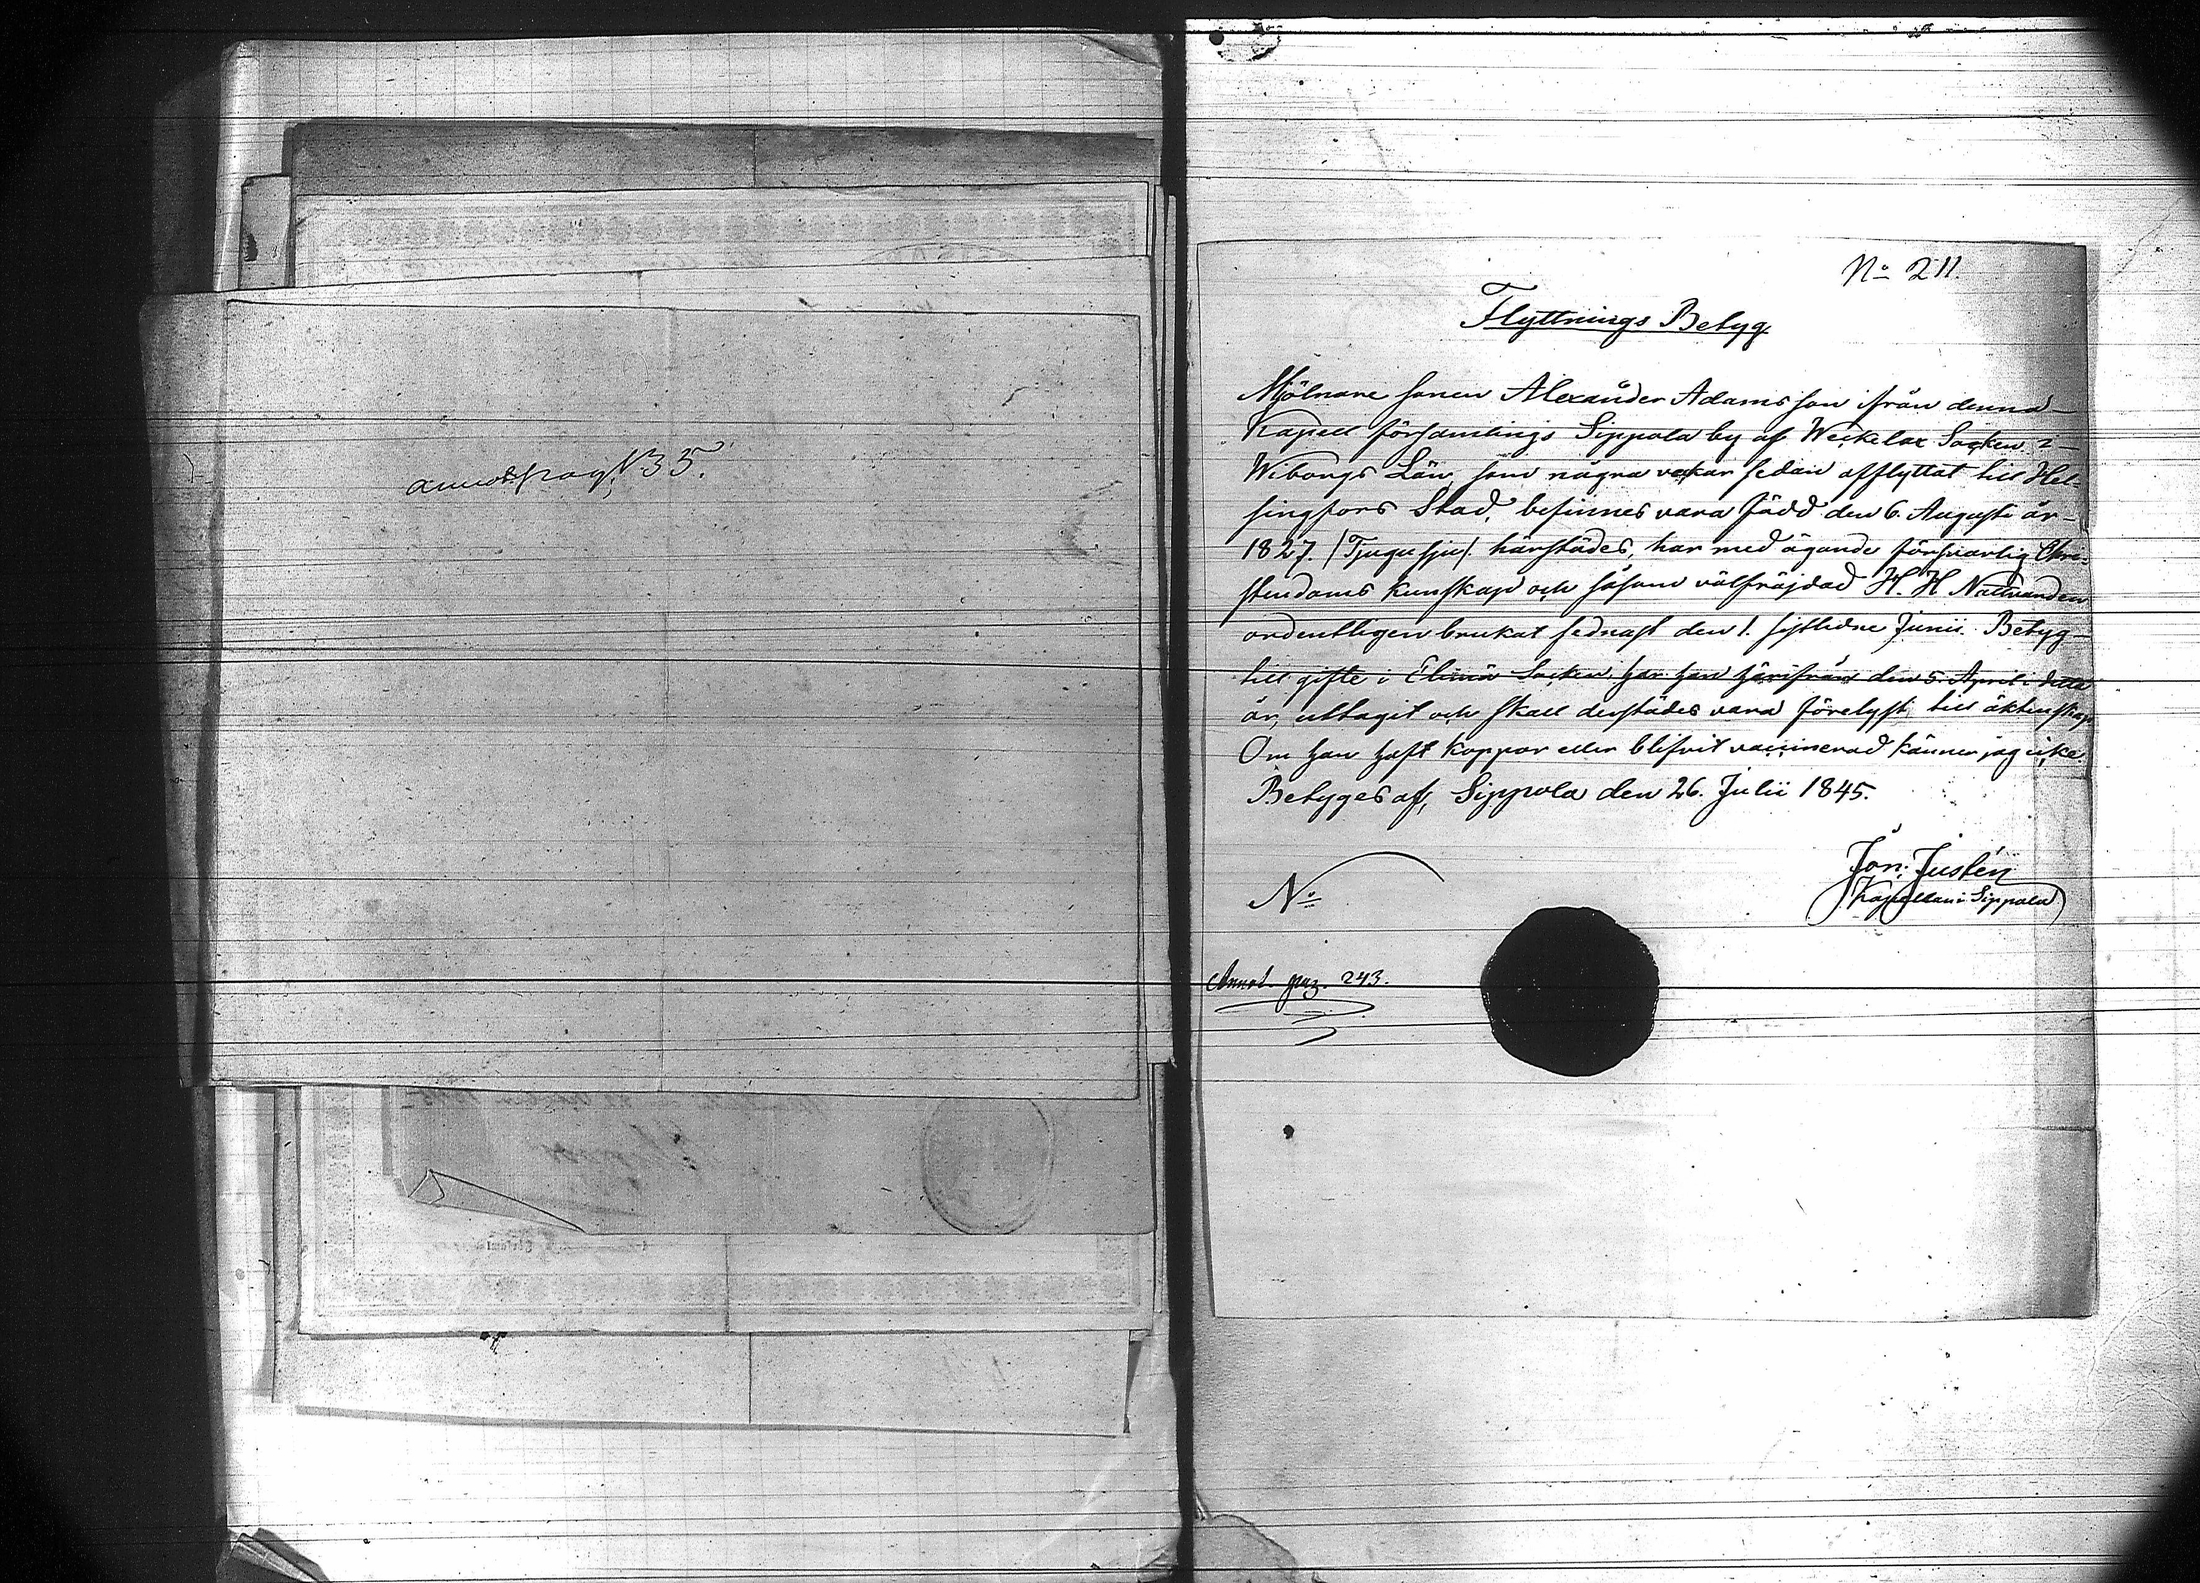 annot pag. 135.
No 211.
Flyttnings Betyg.
Mjölnare sonen Alexander Adamsson ifrån denna
Kapell församlings Sippola by af Weckelax Socken i
Wiborgs Län, som några veckor sedan afflyttat till Hel-
singfors Stad, befinnes vara född den 6. Augusti år
1827. /Tjugusju/. härstädes, har med ägande försvarlig Chri-
stendoms kunskap och såsom välfräjdad H. H. Nattvarden
ordentligen brukat sednast den 1. sistledne Junii. Betyg
till gifte i Elimä Socken har han härifrån den 5. April detta
år, uttagit och skall derstädes vara förelyst till äktenskap.
Om han haft koppor eller blifvit vaccinerad känner jag icke.
Betyges af, Sippola den 26. Julii 1845.
Jon. Justén
Kapellan i Sippola
No
Annot. pag. 243.